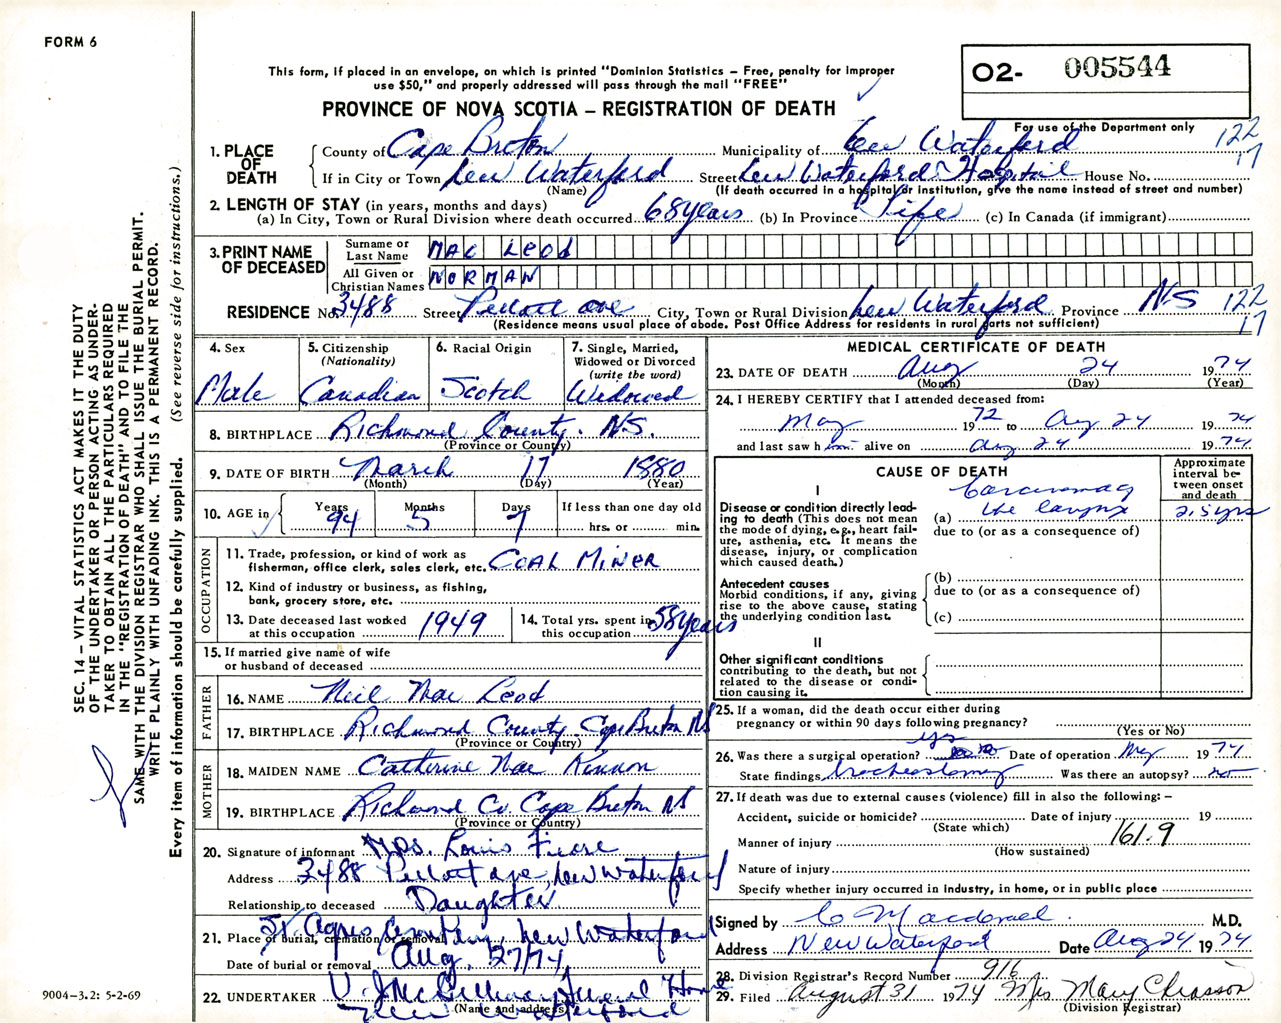 FORM 6
This form, if placed in an envelope, on which is printed "Dominion Statistics – Free, penalty for improper
use $50," and properly addressed will pass through the mail "FREE"
PROVINCE OF NOVA SCOTIA – REGISTRATION OF DEATH
O2- 005544
For use of the Department only
122
17
1. PLACE OF DEATH
County of Cape Breton Municipality of New Waterford
If in City or Town New Waterford Street New Waterford Hospital House No.
(Name) (If death occurred in a hospital or institution, give the name instead of street and number)
2. LENGTH OF STAY (in years, months and days)
(a) In City, Town or Rural Division where death occurred 68 years (b) In Province Life (c) In Canada (if immigrant)
3. PRINT NAME OF DECEASED
Surname or Last Name MAC LEOD
All Given or Christian Names NORMAN
RESIDENCE No. 3488 Street Ave City, Town or Rural Division New Waterford Province N.S 122
17
(Residence means usual place of abode. Post Office Address for residents in rural parts not sufficient)
4. Sex
Male
5. Citizenship
(Nationality)
Canadian
6. Racial Origin
Scotch
7. Single, Married,
Widowed or Divorced
(write the word)
Widowed
8. BIRTHPLACE Richmond County. N.S.
(Province or Country)
9. DATE OF BIRTH March 17 1880
(Month) (Day) (Year)
10. AGE in Years Months Days If less than one day old
94 5 7 hrs. or min.
OCCUPATION
11. Trade, profession, or kind of work as
fisherman, office clerk, sales clerk, etc. COAL MINER
12. Kind of industry or business, as fishing,
bank, grocery store, etc.
13. Date deceased last worked
at this occupation 1949
14. Total yrs. spent in
this occupation 58 years
15. If married give name of wife
or husband of deceased
FATHER
16. NAME Neil Mac Leod
17. BIRTHPLACE Richmond County Cape Breton NS
(Province or Country)
MOTHER
18. MAIDEN NAME Catherine Mac Kinnon
19. BIRTHPLACE Richmond Co. Cape Breton NS
(Province or Country)
20. Signature of informant Mrs. Louis Fiore
Address 3488 ave, New Waterford
Relationship to deceased Daughter
21. Place of burial, cremation or removal St. Agnes Cemetery, New Waterford
Date of burial or removal Aug. 27/74
22. UNDERTAKER V. J. McGillivray Funeral Home
(Name and address) New Waterford
MEDICAL CERTIFICATE OF DEATH
23. DATE OF DEATH Aug 24 1974
(Month) (Day) (Year)
24. I HEREBY CERTIFY that I attended deceased from:
May 1972 to Aug 24 1974
and last saw him alive on Aug 24 1974
CAUSE OF DEATH
Approximate
interval be-
tween onset
and death
I
Disease or condition directly lead-
ing to death (This does not mean
the mode of dying, e.g., heart fail-
ure, asthenia, etc. It means the
disease, injury, or complication
which caused death.)
Carcinoma of
(a) the larynx 2.5 yrs
due to (or as a consequence of)
Antecedent causes
Morbid conditions, if any, giving
rise to the above cause, stating
the underlying condition last.
(b)
due to (or as a consequence of)
(c)
II
Other significant conditions
contributing to the death, but not
related to the disease or condi-
tion causing it.
25. If a woman, did the death occur either during
pregnancy or within 90 days following pregnancy?
(Yes or No)
yes
26. Was there a surgical operation? Date of operation May 1974
State findings tracheostomy Was there an autopsy? no
27. If death was due to external causes (violence) fill in also the following: –
Accident, suicide or homicide? Date of injury 19
(State which)
Manner of injury 161.9
(How sustained)
Nature of injury
Specify whether injury occurred in industry, in home, or in public place
Signed by C Macdonald. M.D.
Address New Waterford Date Aug 24 1974
28. Division Registrar's Record Number 916
29. Filed August 31 1974 Mrs Mary Chiasson
(Division Registrar)
SEC. 14 – VITAL STATISTICS ACT MAKES IT THE DUTY
OF THE UNDERTAKER OR PERSON ACTING AS UNDER-
TAKER TO OBTAIN ALL THE PARTICULARS REQUIRED
IN THE "REGISTRATION OF DEATH" AND TO FILE THE
SAME WITH THE DIVISION REGISTRAR WHO SHALL ISSUE THE BURIAL PERMIT.
WRITE PLAINLY WITH UNFADING INK. THIS IS A PERMANENT RECORD.
Every item of information should be carefully supplied. (See reverse side for instructions.)
9004–3.2: 5-2-69